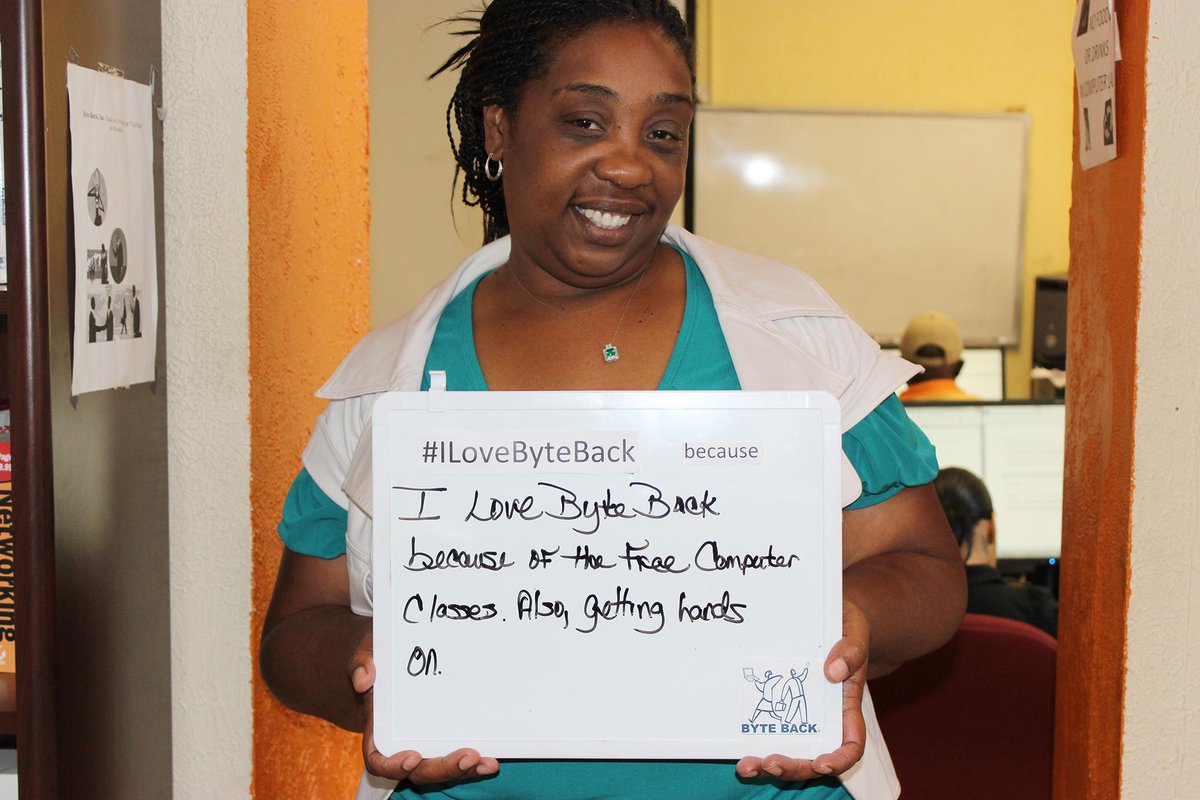 NO FOOD
OR DRINKS
IN COMPUTER LA
Byte Back, Inc.
#ILoveByteBack because
I Love Byte Back
because of the Free Computer
Classes. Also, getting hands
on.
BYTE BACK
Networking